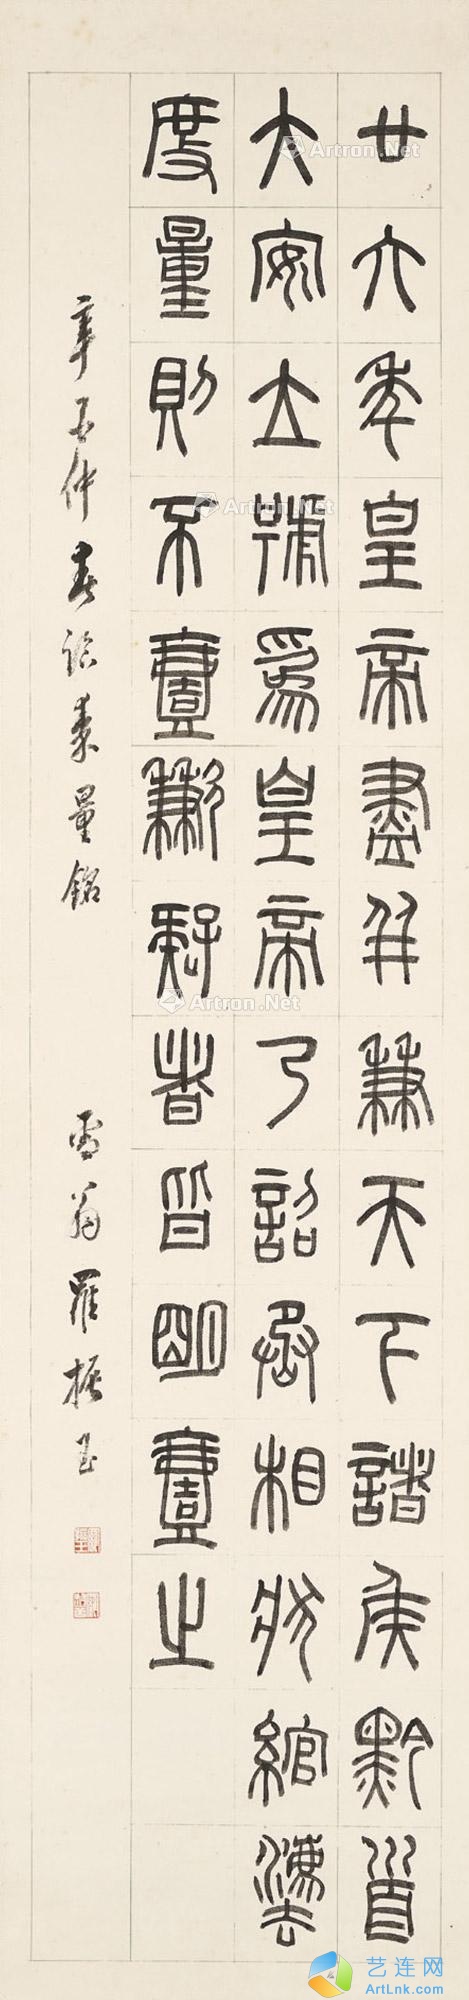 廿六年皇帝盡并兼天下諸侯黔首
大安立號為皇帝乃詔丞相狀綰灋
度量則不壹歉疑者皆明壹之
辛未仲春臨秦量銘 雪翁羅振玉
Artron.Net
Artron.Net
Artron.Net
艺连网
ArtLnk.com